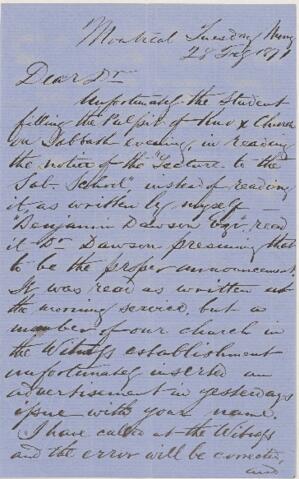 Montreal Tuesday Mng
28 Feby 1871
Dear Dr
Unfortunately the Student
filling the Pulpit of Knox Church
on Sabbath Evening, in reading
the notice of the "Lecture to the
Sab- School", instead of reading
it, as written by myself —
Benjamin Dawson Esqr. read
it Dr Dawson presuming that
to be the proper announcement
It was read as written at
the morning service, but a
member of our church in
the Witness establishment
unfortunately inserted an
advertisement in yesterdays
issue with your name.
I have called at the Witness
and the error will be corrected,
and